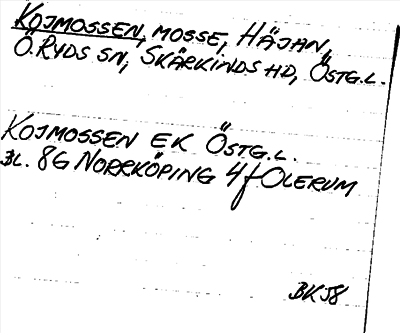 KOJMOSSEN, MOSSE, HÄJAN,
Ö. RYDS SN, SKÄRKINDS HD, ÖSTG.L.
KOJMOSSEN EK ÖSTG.L.
BL. 8G NORRKÖPING 4f OLERUM
BK58